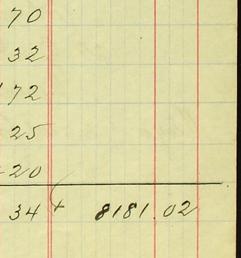 70
32
72
25
20
34 + 8181.02